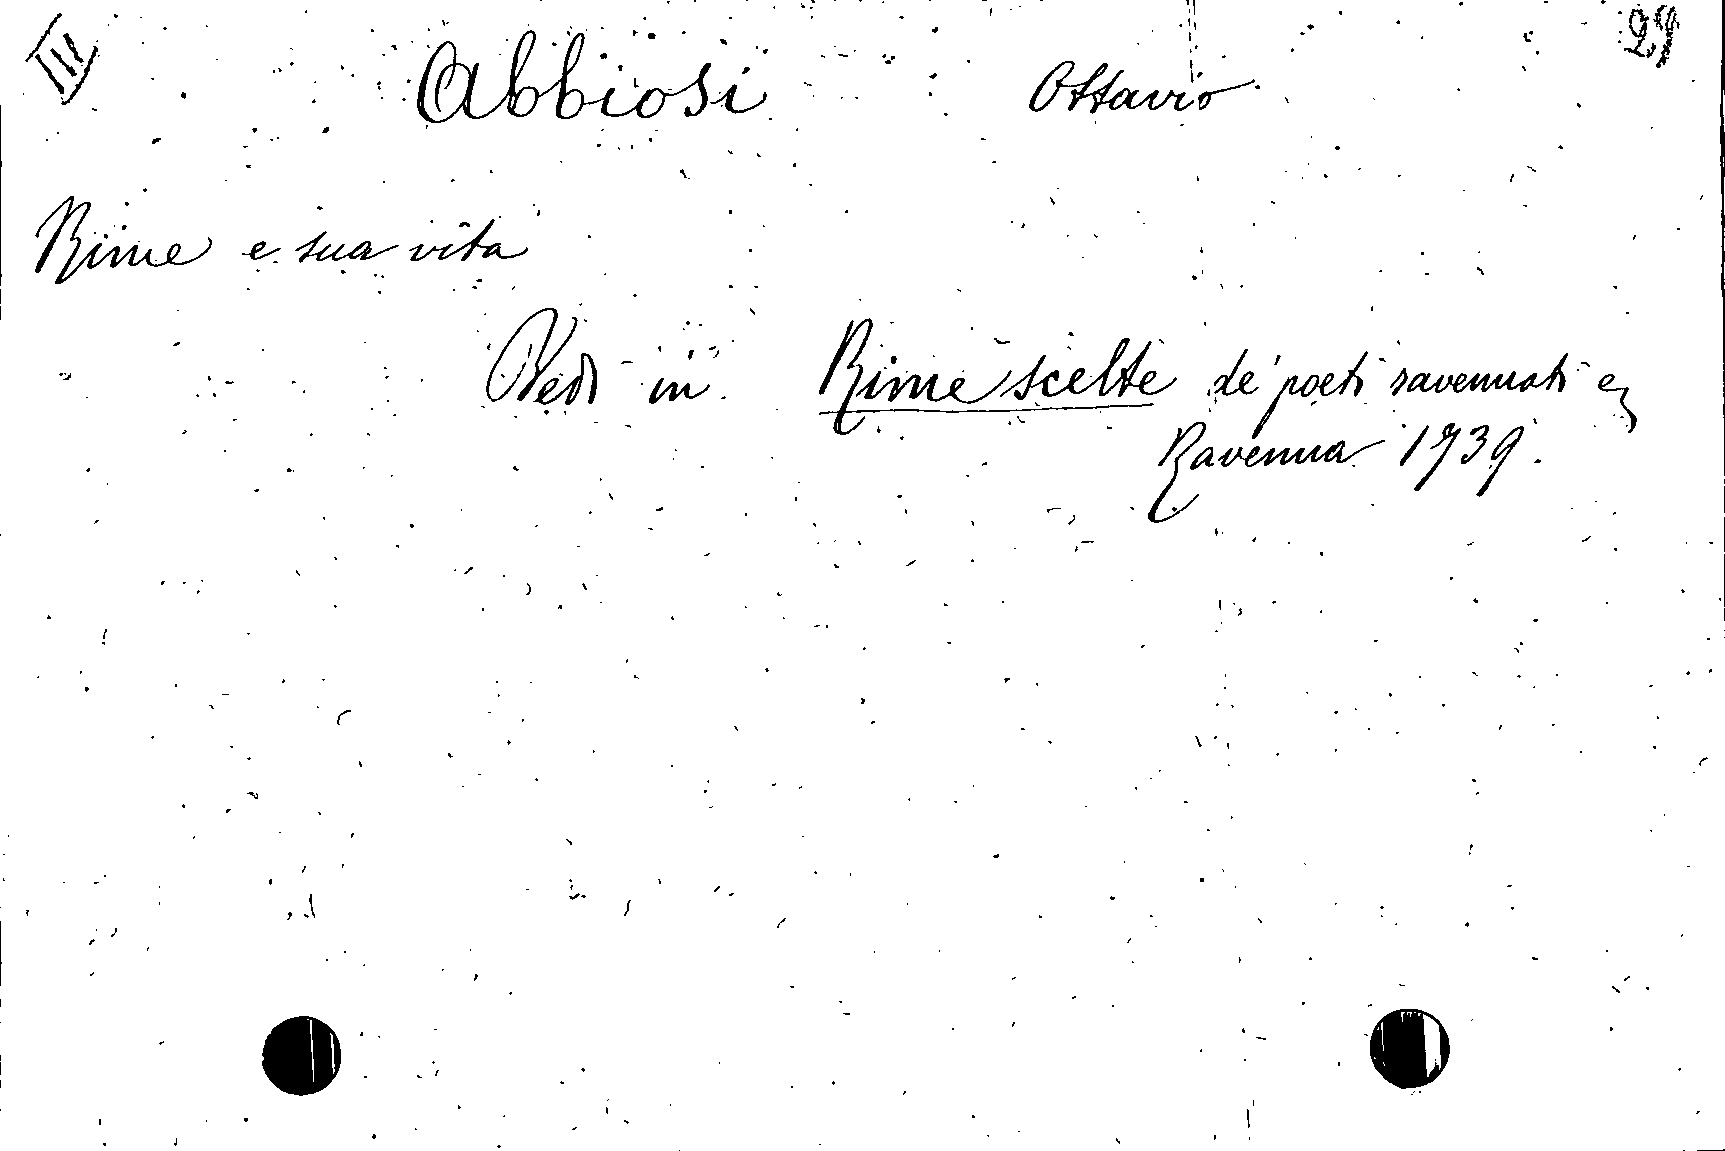 III Abbiosi Ottavio 27
Rime e sua vita
Vedi in Rime scelte de' poeti ravennati ec
Ravenna 1739.